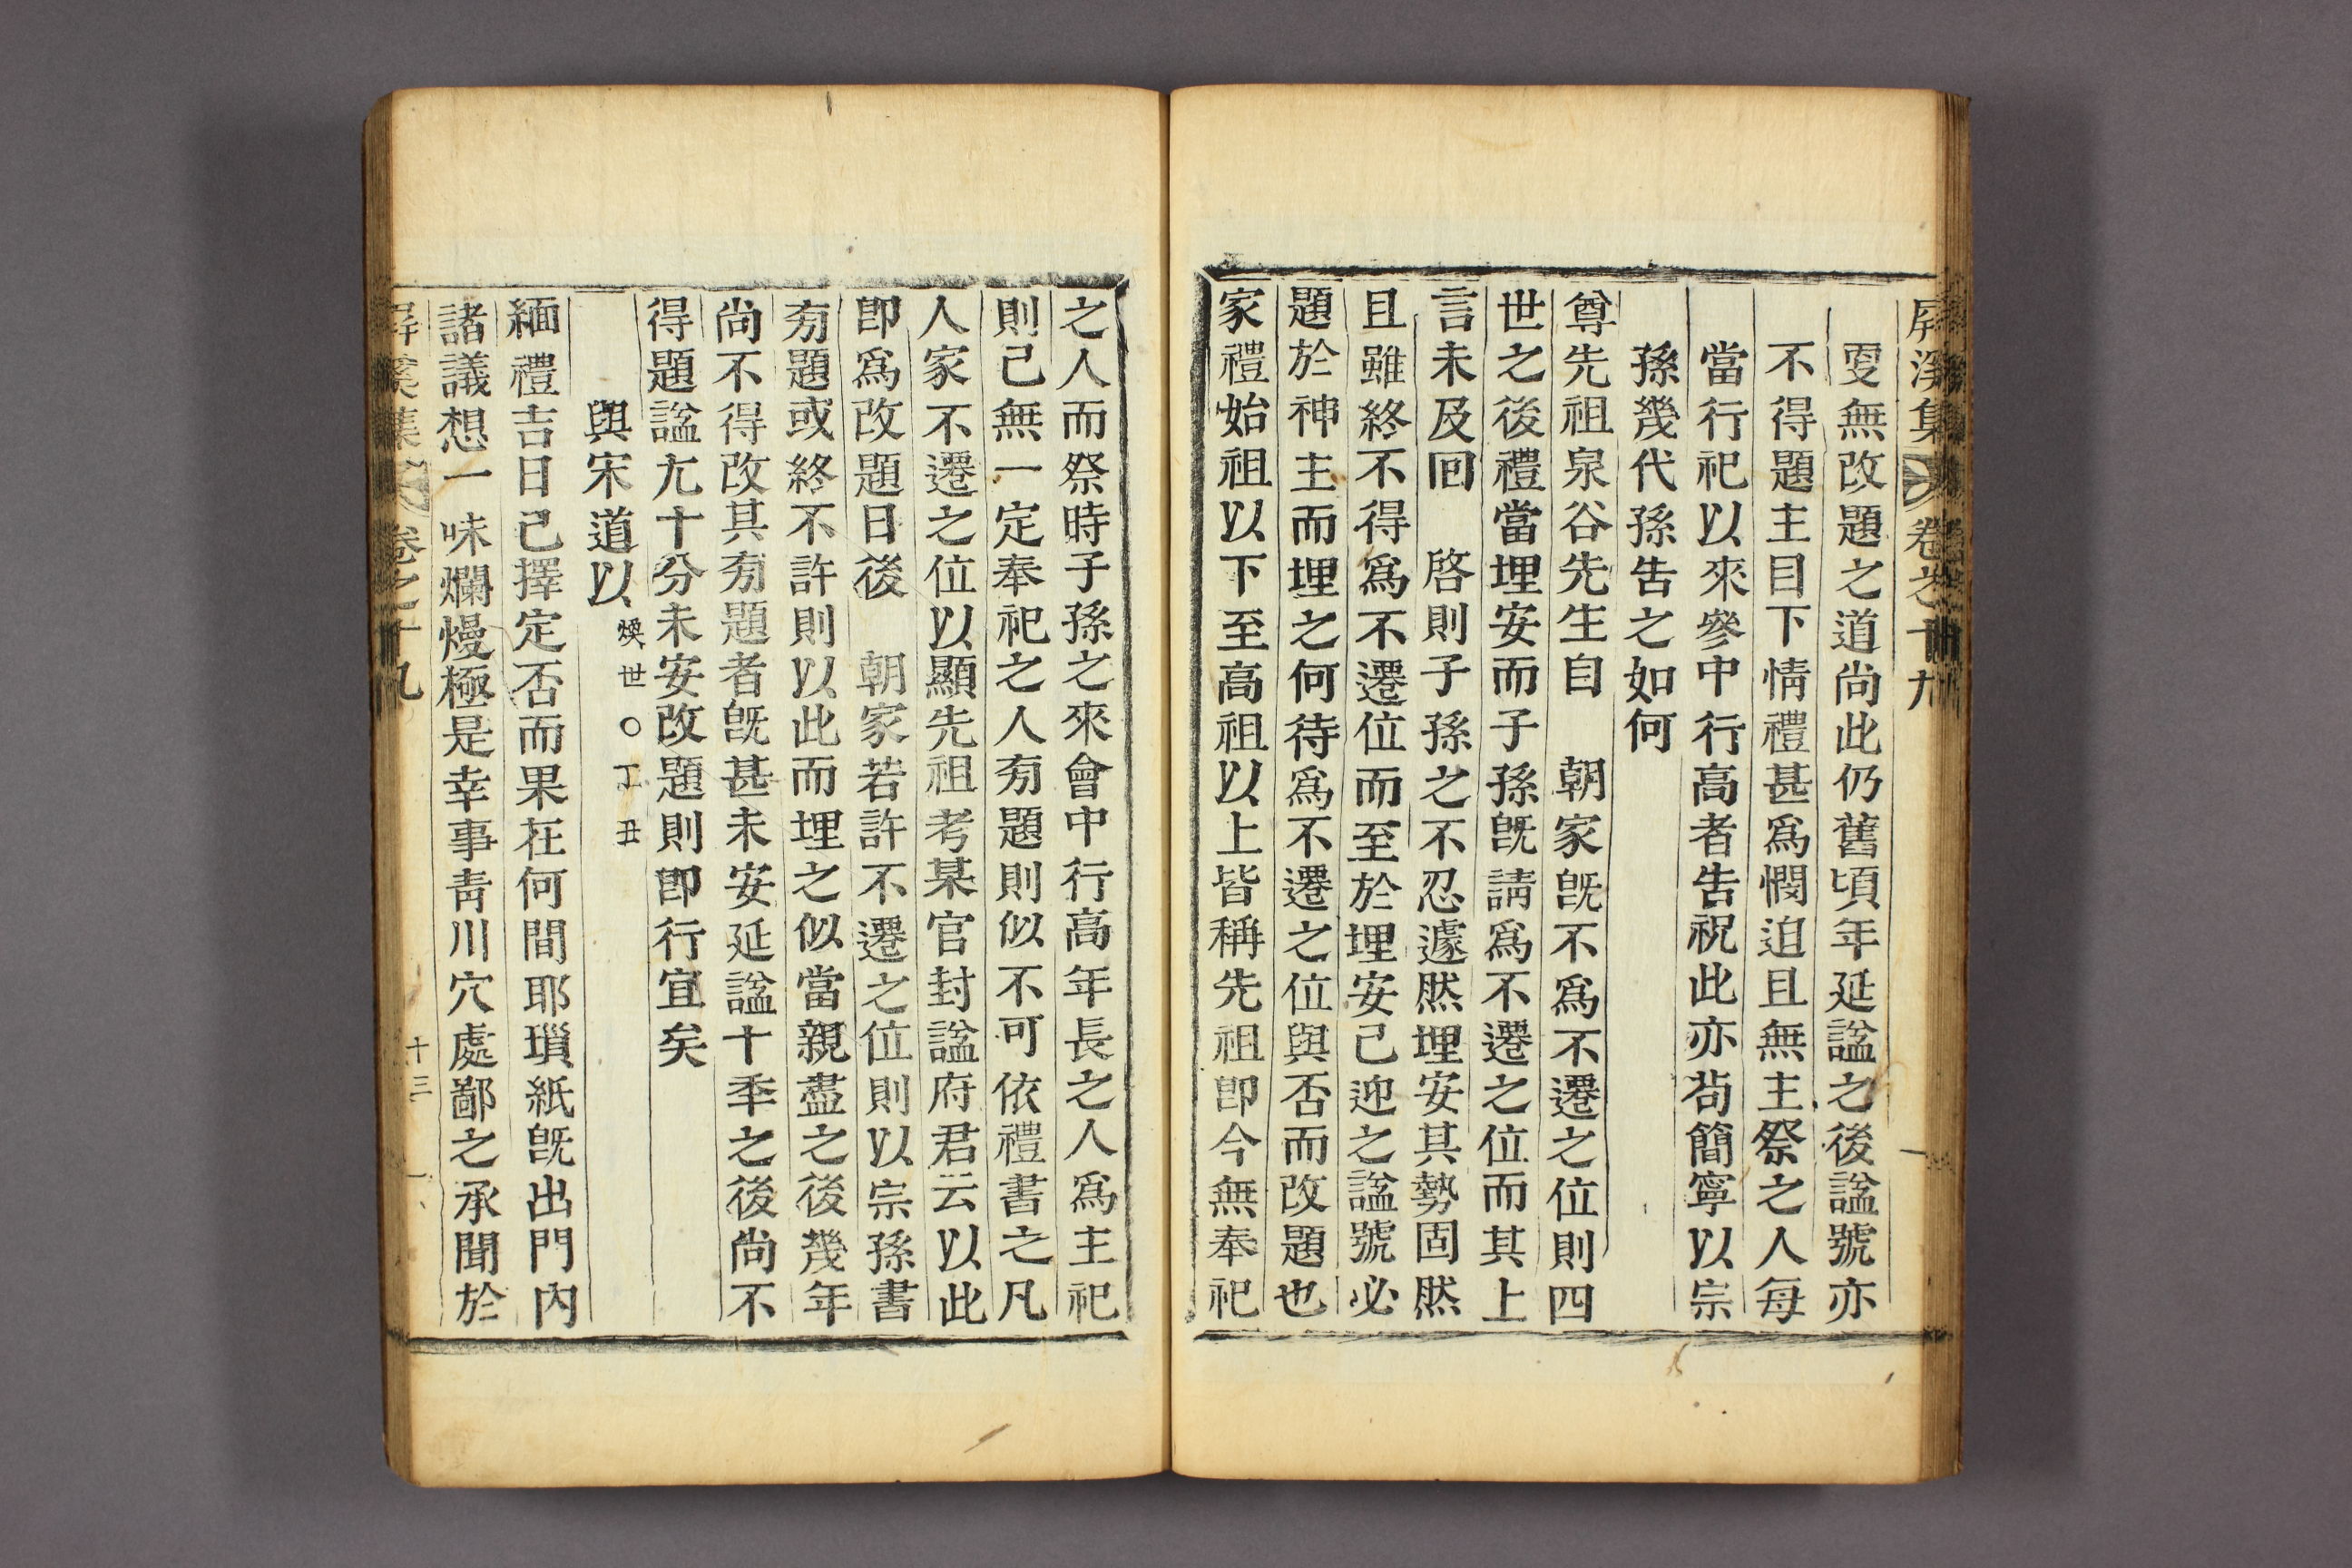 屛溪集
卷之十九
更無改題之道尙此仍舊頃年延諡之後諡號亦
不得題主目下情禮甚爲憫迫且無主祭之人每
當行祀以來參中行高者告祝此亦苟簡寧以宗
孫幾代孫告之如何
尊先祖泉谷先生自　朝家旣不爲不遷之位則四
世之後禮當埋安而子孫旣請爲不遷之位而其上
言未及回　啓則子孫之不忍遽然埋安其勢固然
且雖終不得爲不遷位而至於埋安已迎之諡號必
題於神主而埋之何待爲不遷之位與否而改題也
家禮始祖以下至高祖以上皆稱先祖卽今無奉祀
之人而祭時子孫之來會中行高年長之人爲主祀
則已無一定奉祀之人㫄題則似不可依禮書之凡
人家不遷之位以顯先祖考某官封諡府君云以此
卽爲改題日後　朝家若許不遷之位則以宗孫書
㫄題或終不許則以此而埋之似當親盡之後幾年
尙不得改其㫄題者旣甚未安延諡十年之後尙不
得題諡尤十分未安改題則卽行宜矣
與宋道以煥世○丁丑
緬禮吉日已擇定否而果在何間耶瑣紙旣出門內
諸議想一味爛熳極是幸事靑川穴處鄙之承聞於
屛溪集
卷之十九
十三